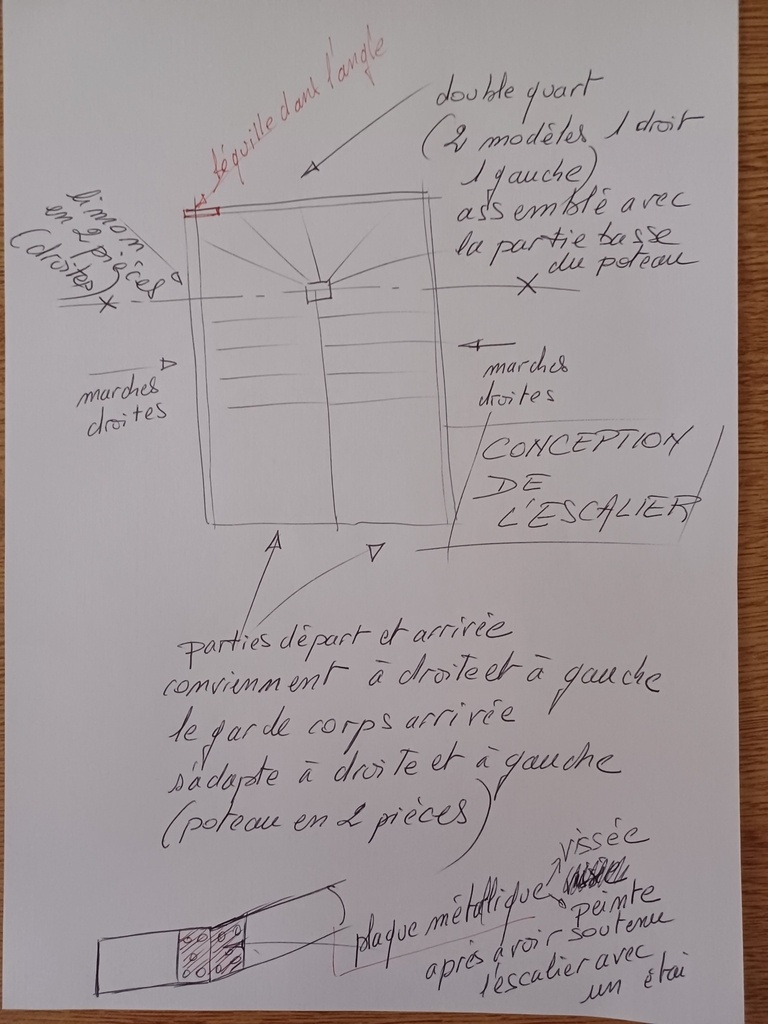 béquille dans l'angle
double quart
(2 modèles 1 droit
1 gauche)
assemblé avec
la partie basse
du poteau
limon
en 2 pièces
(droites)
marches
droites
marches
droites
CONCEPTION
DE
L'ESCALIER
parties départ et arrivée
conviennment à droite et à gauche
le garde corps arrivée
s'adapte à droite et à gauche
(poteau en 2 pièces)
plaque métallique
vissée
peinte
après avoir soutenu
l'escalier avec
un étai